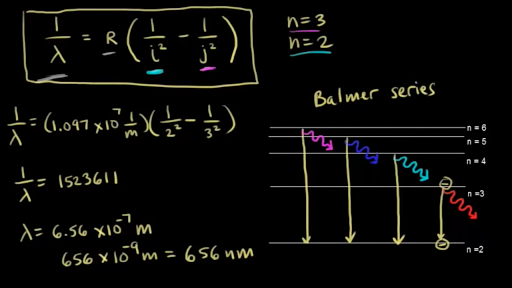 1/λ = R (1/i² - 1/j²)
n=3
n=2
Balmer series
1/λ = (1.097 x 10⁷ 1/m)(1/2² - 1/3²)
1/λ = 1523611
λ = 6.56 x 10⁻⁷ m
656 x 10⁻⁹ m = 656 nm
n = 6
n = 5
n = 4
n =3
n =2